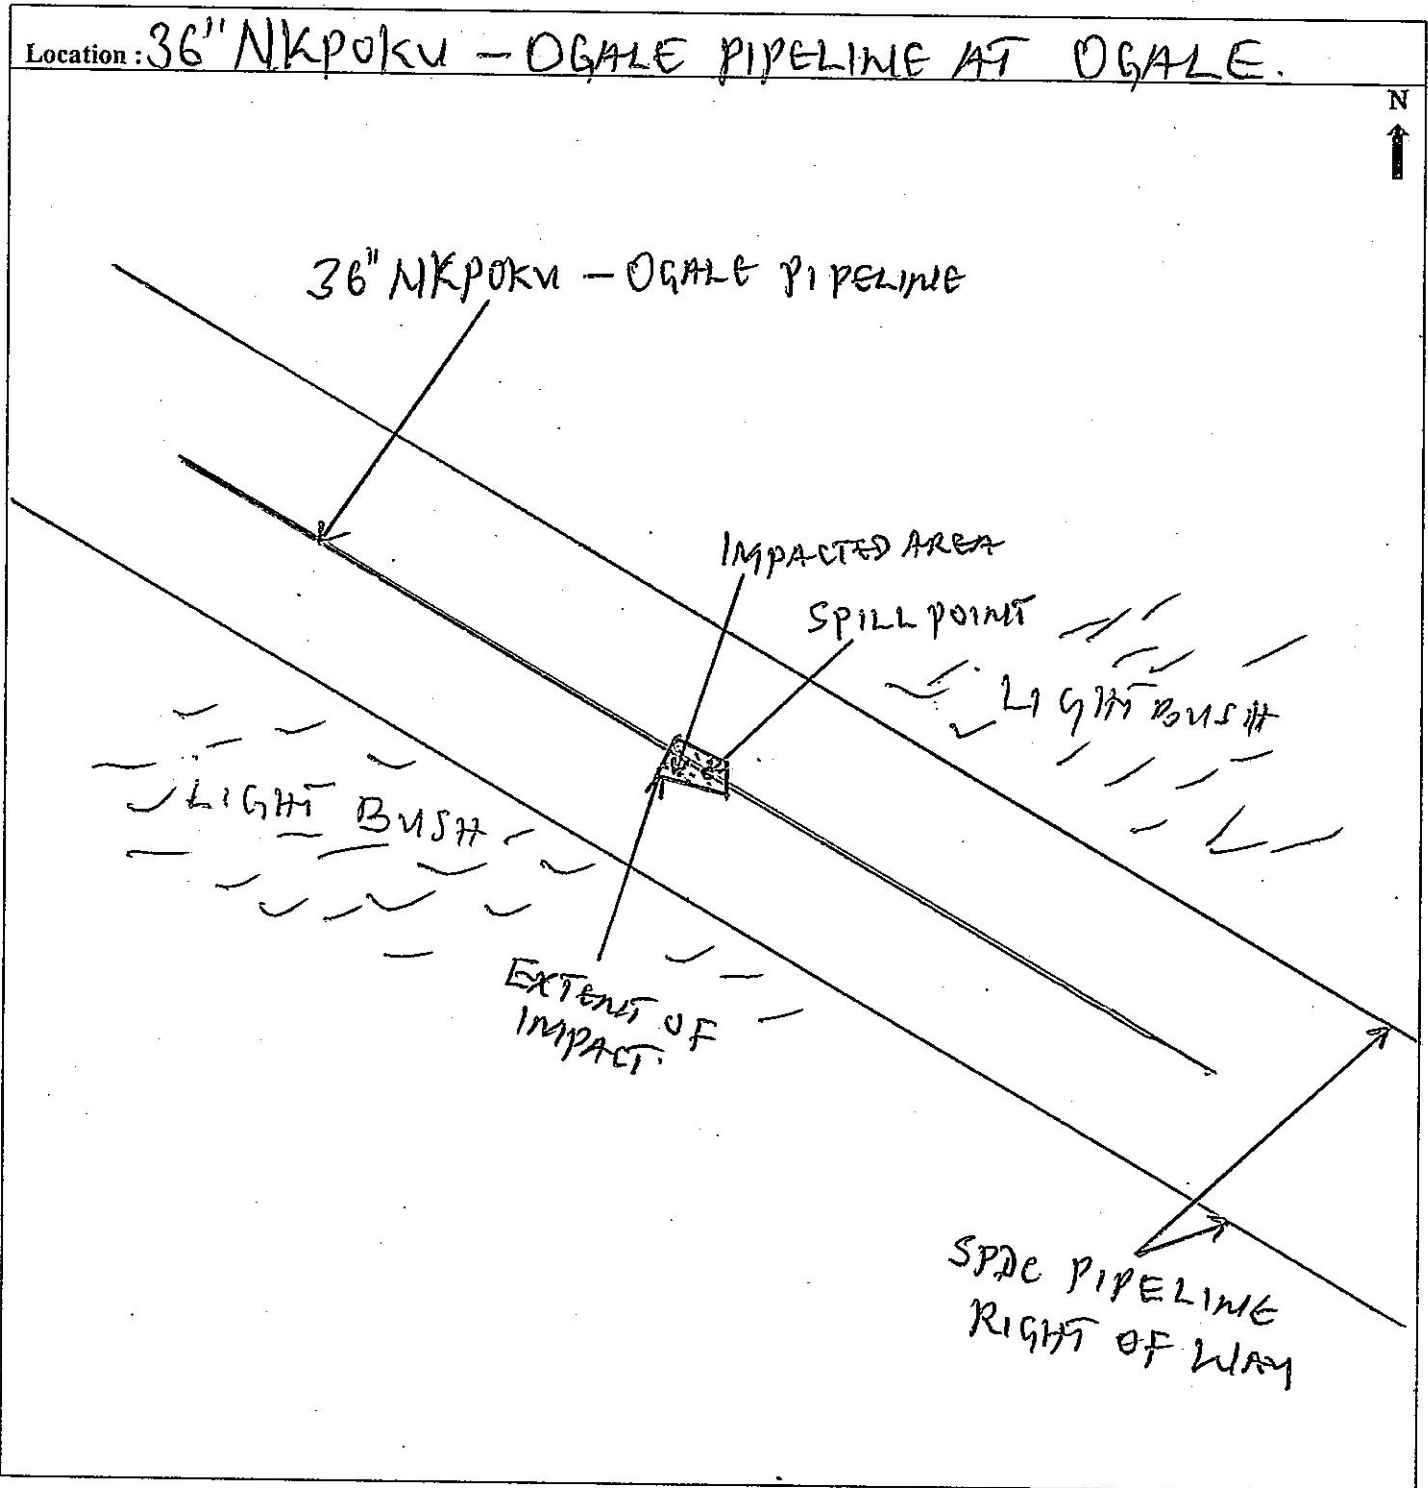 Location : 36" NKPOKU - OGALE PIPELINE AT OGALE.
N
36" NKPOKU - OGALE PIPELINE
IMPACTED AREA
SPILL POINT
LIGHT BUSH
LIGHT BUSH
EXTENT OF
IMPACT.
SPDC PIPELINE
RIGHT OF WAY